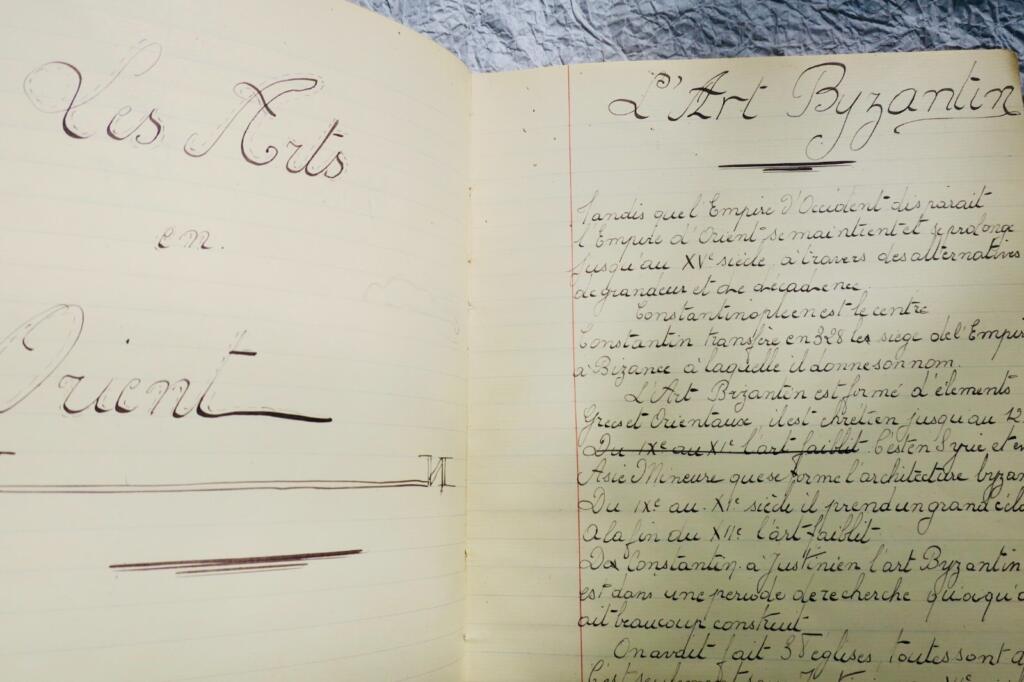 Les Arts
en.
Orient
L'Art Byzantin
Tandis que l'Empire d'Occident disparait
l'Empire d'Orient se maintient et se prolonge
jusqu'au XVe siècle, à travers des alternatives
de grandeur et de décadence.
Constantinople en est le centre
Constantin transfère en 328 les siège de l'Empir
à Bizance à laquelle il donne son nom.
L'Art Byzantin est formé d'élements
Grecs et Orientaux, il est chrétien jusqu'au 12
Du IXe au XIe l'art faiblit C'est en Syrie et en
Asie Mineure que se forme l'architecture byzan
Du IXe au XIe siècle il prend un grand écla
A la fin du XIIe l'art faiblit
De Constantin à Justinien l'art Byzantin
est dans une periode de recherche quoiqu'o
ait beaucoup construit
On avait fait 38 églises, toutes sont d
C'est seulement